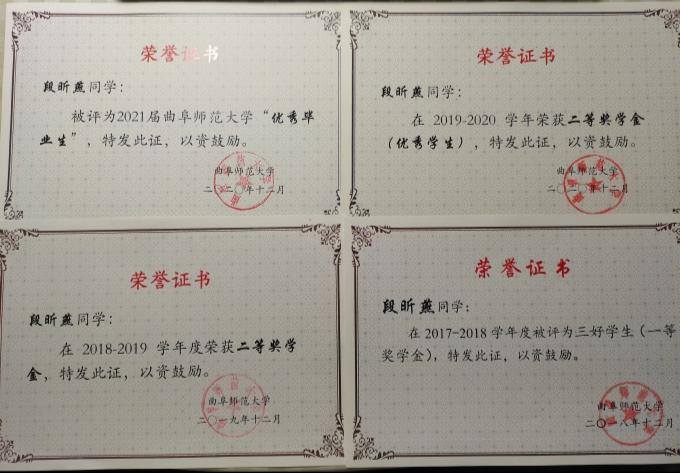 荣誉证书
段昕燕同学：
被评为2021届曲阜师范大学“优秀毕
业生”，特发此证，以资鼓励。
曲阜师范大学
二〇二〇年十二月
荣誉证书
段昕燕同学：
在 2019-2020 学年荣获二等奖学金
（优秀学生），特发此证，以资鼓励。
曲阜师范大学
二〇二〇年十二月
荣誉证书
段昕燕同学：
在 2018-2019 学年度荣获二等奖学
金，特发此证，以资鼓励。
曲阜师范大学
二〇一九年十二月
荣誉证书
段昕燕同学：
在2017-2018学年度被评为三好学生（一等
奖学金），特发此证，以资鼓励。
曲阜师范大学
二〇一八年十二月